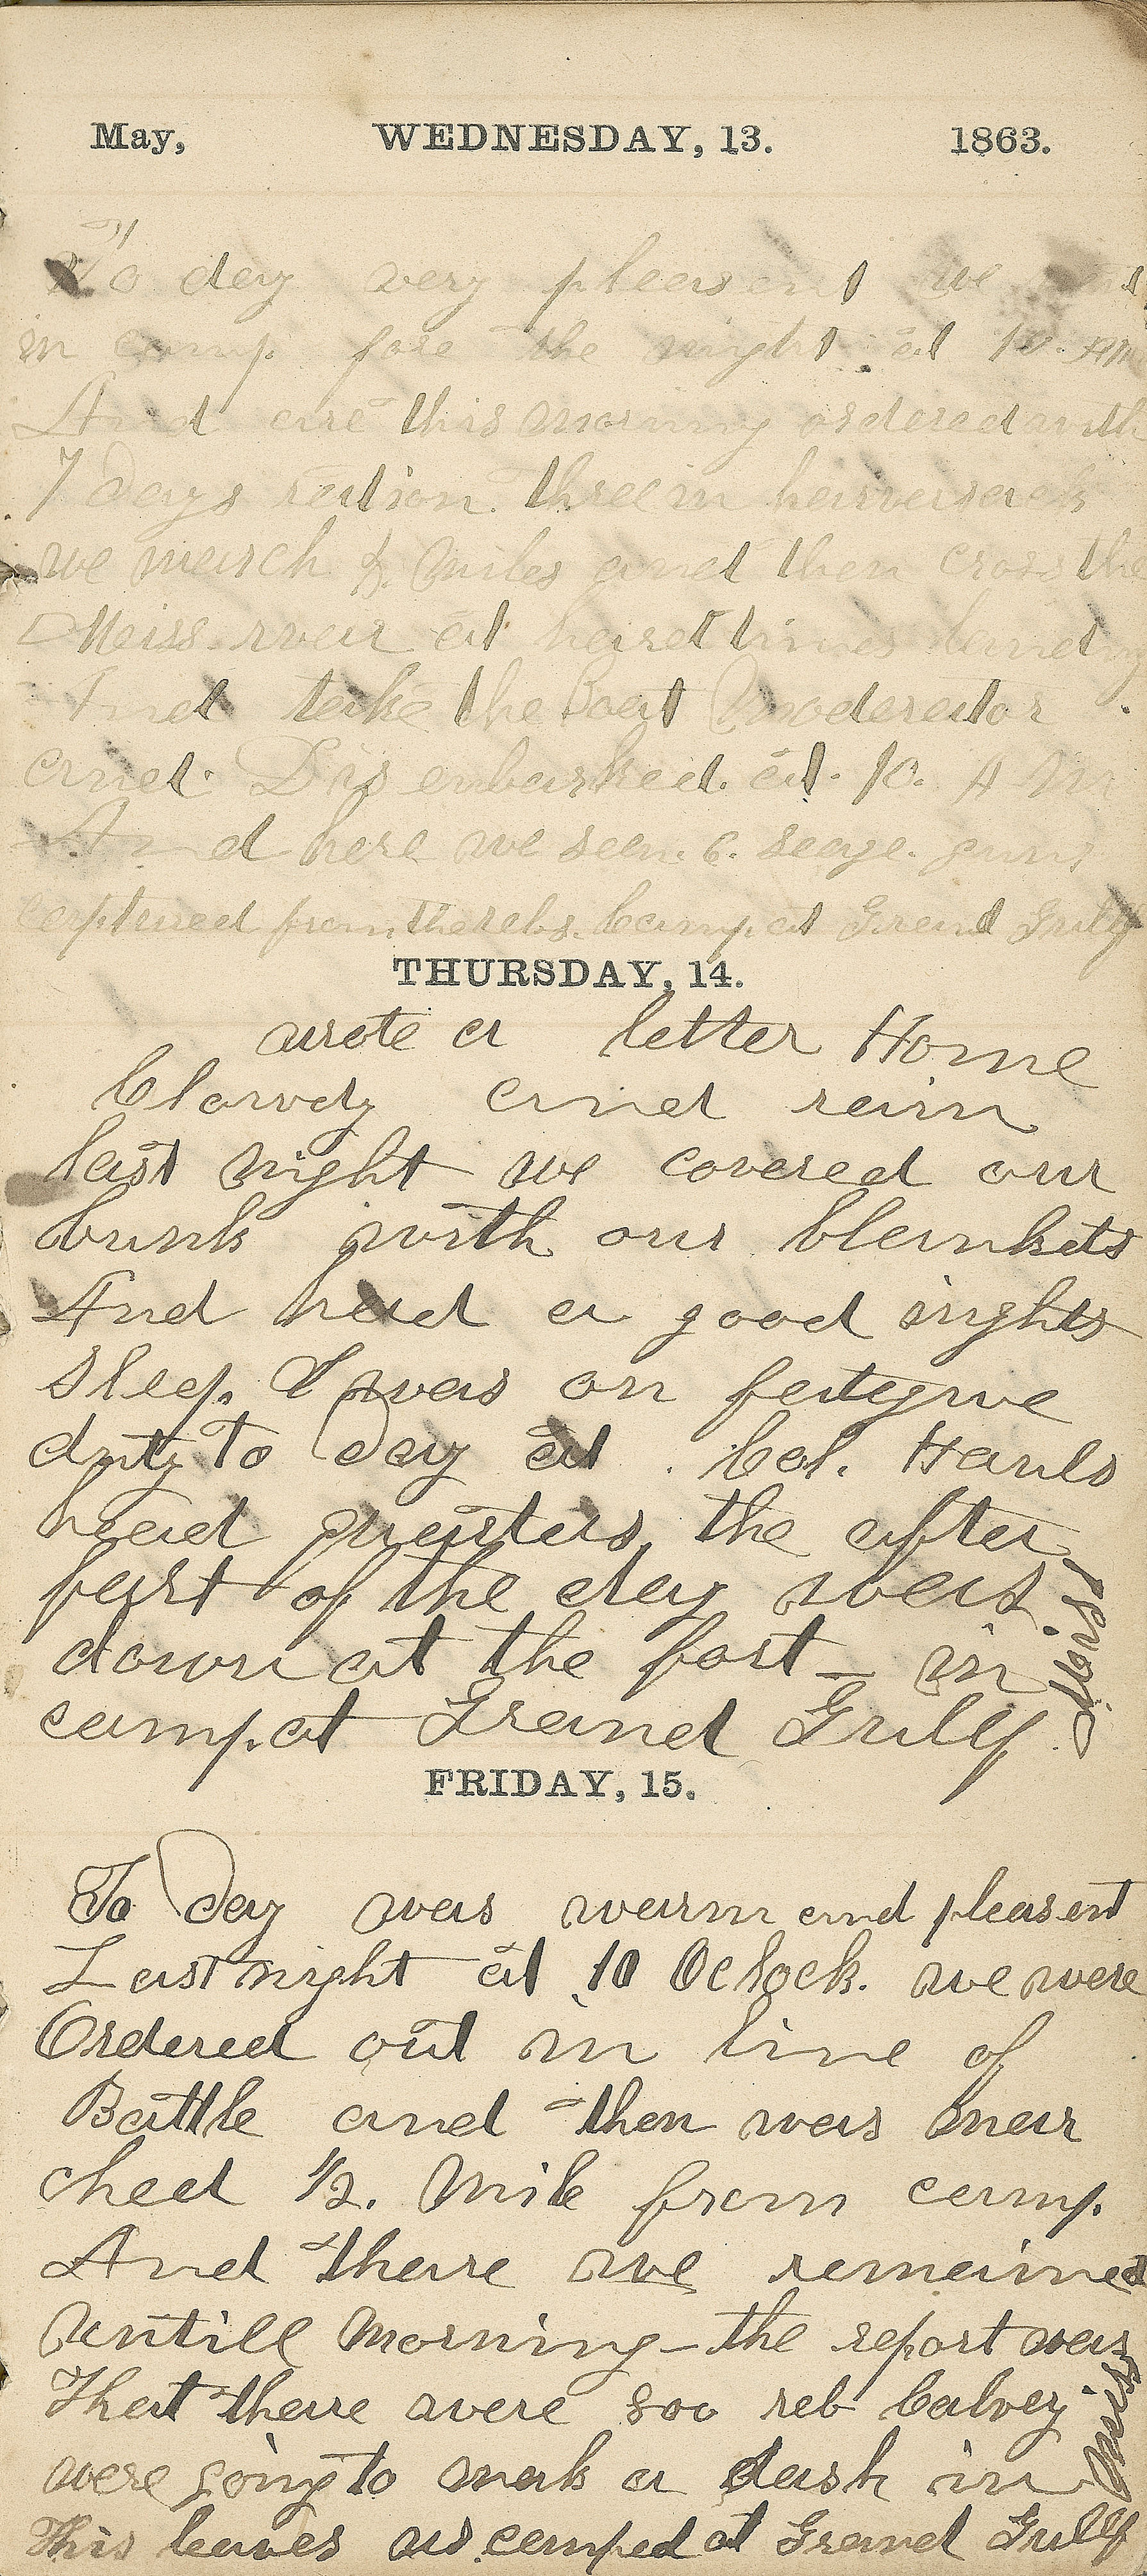 May, WEDNESDAY, 13. 1863.
To day very pleasent we
in camp. fore the night. at 10 pm
And are this morning ordered with
7 Days ration. three in haversacks
we march 8. Miles and then cross the
Miss. river at hard times landing
And take the Boat Moderator
and. Disembarked. at. 10. A M
And here we seen. 6. seege. guns
captured from the rebs. Camp at Grand Gulf
THURSDAY, 14.
wrote a letter Home
Clowdy and rain
last night we covered our
bunk with our blankets
And had a good nights
Sleep. I was on fatigue
duty To Day at. Col. Halls
head quarters, the after
part of the day was
down at the fort — in
camp. at Grand Gulf.
Miss
FRIDAY, 15.
To Day was warm and pleasent
Last night at 10 Oclock. we were
Ordered out in line of
Battle and then was mar
ched 1/2. Mile from camp.
And there we remained
untill Morning — the report was
That there were 800 reb Calvey
were going to mak a dash in
This leaves us. camped at Grand Gulf
Miss